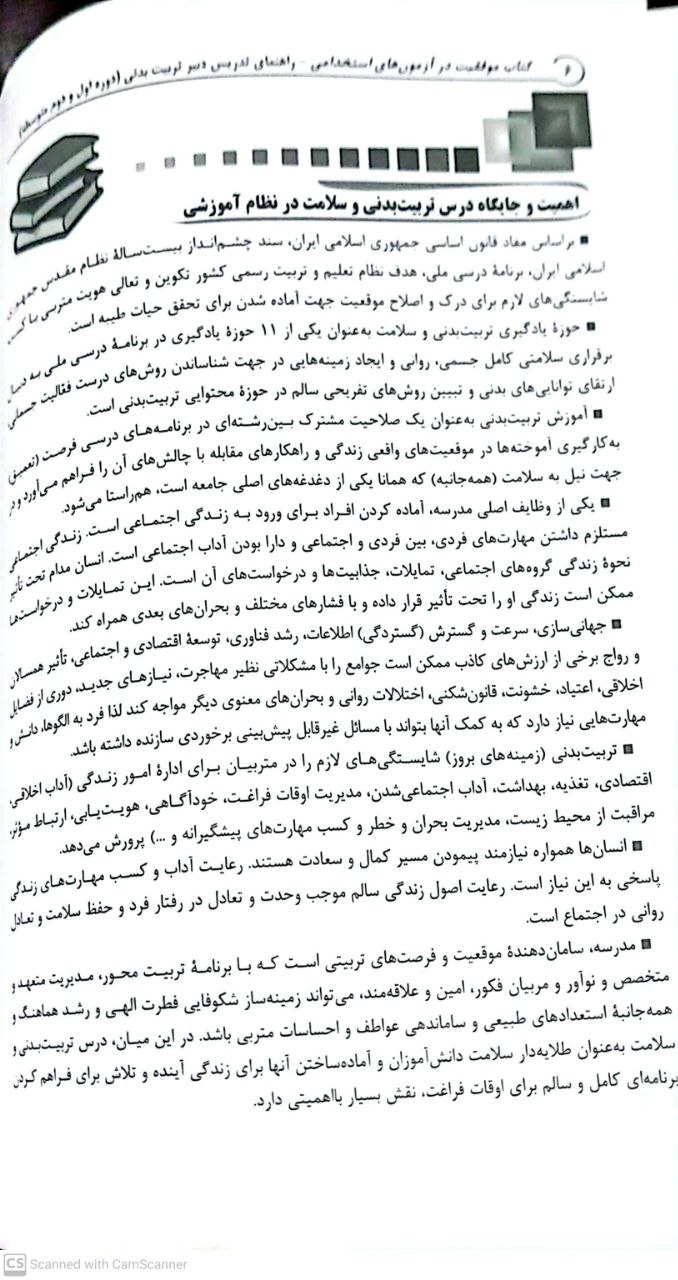 ۶ کتاب موفقیت در آزمون‌های استخدامی - راهنمای تدریس دبیر تربیت بدنی (دوره اول و دوم متوسطه)
اهمیت و جایگاه درس تربیت‌بدنی و سلامت در نظام آموزشی
■ براساس مفاد قانون اساسی جمهوری اسلامی ایران، سند چشم‌انداز بیست‌سالۀ نظام مقدس جمهوری
اسلامی ایران، برنامۀ درسی ملی، هدف نظام تعلیم و تربیت رسمی کشور تکوین و تعالی هویت متربی با کسب
شایستگی‌های لازم برای درک و اصلاح موقعیت جهت آماده شدن برای تحقق حیات طیبه است.
■ حوزۀ یادگیری تربیت‌بدنی و سلامت به‌عنوان یکی از ۱۱ حوزۀ یادگیری در برنامۀ درسی ملی به دنبال
برقراری سلامتی کامل جسمی، روانی و ایجاد زمینه‌هایی در جهت شناساندن روش‌های درست فعّالیت جسمانی،
ارتقای توانایی‌های بدنی و تبیین روش‌های تفریحی سالم در حوزۀ محتوایی تربیت‌بدنی است.
■ آموزش تربیت‌بدنی به‌عنوان یک صلاحیت مشترک بین‌رشته‌ای در برنامه‌های درسی فرصت (تعمیق)
به‌کارگیری آموخته‌ها در موقعیت‌های واقعی زندگی و راهکارهای مقابله با چالش‌های آن را فراهم می‌آورد و در
جهت نیل به سلامت (همه‌جانبه) که همانا یکی از دغدغه‌های اصلی جامعه است، هم‌راستا می‌شود.
■ یکی از وظایف اصلی مدرسه، آماده کردن افراد برای ورود به زندگی اجتماعی است. زندگی اجتماعی
مستلزم داشتن مهارت‌های فردی، بین فردی و اجتماعی و دارا بودن آداب اجتماعی است. انسان مدام تحت تأثیر
نحوۀ زندگی گروه‌های اجتماعی، تمایلات، جذابیت‌ها و درخواست‌های آن است. این تمایلات و درخواست‌ها
ممکن است زندگی او را تحت تأثیر قرار داده و با فشارهای مختلف و بحران‌های بعدی همراه کند.
■ جهانی‌سازی، سرعت و گسترش (گستردگی) اطلاعات، رشد فناوری، توسعۀ اقتصادی و اجتماعی، تأثیر همسالان
و رواج برخی از ارزش‌های کاذب ممکن است جوامع را با مشکلاتی نظیر مهاجرت، نیازهای جدید، دوری از فضایل
اخلاقی، اعتیاد، خشونت، قانون‌شکنی، اختلالات روانی و بحران‌های معنوی دیگر مواجه کند لذا فرد به الگوها، دانش و
مهارت‌هایی نیاز دارد که به کمک آنها بتواند با مسائل غیرقابل پیش‌بینی برخوردی سازنده داشته باشد.
■ تربیت‌بدنی (زمینه‌های بروز) شایستگی‌های لازم را در متربیان برای ادارۀ امور زندگی (آداب اخلاقی،
اقتصادی، تغذیه، بهداشت، آداب اجتماعی‌شدن، مدیریت اوقات فراغت، خودآگاهی، هویت‌یابی، ارتباط مؤثر،
مراقبت از محیط زیست، مدیریت بحران و خطر و کسب مهارت‌های پیشگیرانه و ...) پرورش می‌دهد.
■ انسان‌ها همواره نیازمند پیمودن مسیر کمال و سعادت هستند. رعایت آداب و کسب مهارت‌های زندگی
پاسخی به این نیاز است. رعایت اصول زندگی سالم موجب وحدت و تعادل در رفتار فرد و حفظ سلامت و تعادل
روانی در اجتماع است.
■ مدرسه، سامان‌دهندۀ موقعیت و فرصت‌های تربیتی است که با برنامۀ تربیت محور، مدیریت متعهد و
متخصص و نوآور و مربیان فکور، امین و علاقه‌مند، می‌تواند زمینه‌ساز شکوفایی فطرت الهی و رشد هماهنگ و
همه‌جانبۀ استعدادهای طبیعی و ساماندهی عواطف و احساسات متربی باشد. در این میان، درس تربیت‌بدنی و
سلامت به‌عنوان طلایه‌دار سلامت دانش‌آموزان و آماده‌ساختن آنها برای زندگی آینده و تلاش برای فراهم کردن
برنامه‌ای کامل و سالم برای اوقات فراغت، نقش بسیار بااهمیتی دارد.
CS Scanned with CamScanner